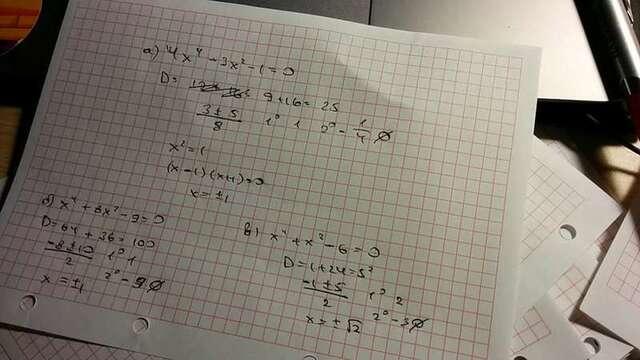 а) 4x⁴ - 3x² - 1 = 0
D = 9 + 16 = 25
(3 ± 5)/8 1° 1 2° - 1/4 ∅
x² = 1
(x - 1)(x + 1) = 0
x = ±1
б) x⁴ + 8x² - 9 = 0
D = 64 + 36 = 100
(-8 ± 10)/2 1° 1
2° - 9 ∅
x = ±1
в) x⁴ + x² - 6 = 0
D = 1 + 24 = 5²
(-1 ± 5)/2 1° 2
2° - 3 ∅
x = ± √2